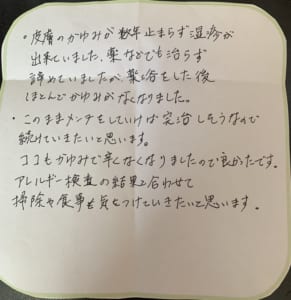 ・皮膚のかゆみが数年止まらず湿疹が
出来ていました。薬などでも治らず
諦めていましたが、薬浴をした後
ほとんどかゆみがなくなりました。
・このままメンテをしていけば完治しそうなので
続けていきたいと思います。
ココもかゆみで辛くなくなりましたので良かったです。
アレルギー検査の結果と合わせて
掃除や食事も気をつけていきたいと思います。